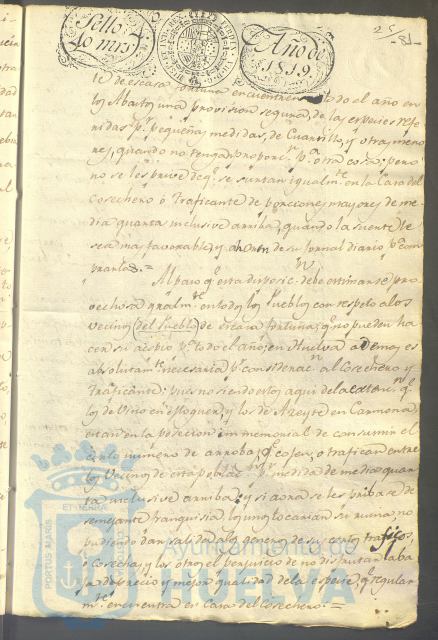 Sello
40 mrs
Año de
1819.
25
-81-
te de escasa fortuna encuentren todo el año en
los Abastos una provision segura, de las especies refe
ridas pr. pequeñas medidas, de Quartillo, y otras meno
res, quando no tengan proporn. pa. otra cosa; pero
no se les prive de qe. se surtan igualmte. en la Casa del
Cosechero ó traficante de porciones mayores de me
dia quarta inclusive arriba, quando la suerte le
sea mas favorable, y ahorren de su jornal diario pa. com
prarlas. =
Al paso qe. esta disposicn. debe estimarse pro
vechosa gralmte. en todos los Pueblos con respeto a los
vecinos del Pueblo de escasa fortuna, qe. no pueden ha
cer su acopio pa. todo el año; en Huelva ademas es
absolutamte. necesaria pr. consideracn. al Cosechero y
traficante: pues no siendo estos aqui de la
los de Vino en Moguer, y los de Azeyte en Carmona,
estan en la posecion inmemorial de consumir el
corto numero de arrobas qe. cojen, o trafican entre
los Vecinos de esta poblacn. pr. medida de media quar
ta inclusive arriba; y si aora se les pribase de
semejante franquisia, los unos tocarian su ruina no
pudiendo dar salida a los generos de su corto trafico,
o Cosecha, y los otros el perjuicio de no disfrutar la ba
ja del precio y mejor qualidad de la especie, qe. regular
mte. encuentra en Casa del Cosechero. =
PORTUS MARIS
ET TERRÆ
CUSTODIA
Ayuntamiento de
HUELVA